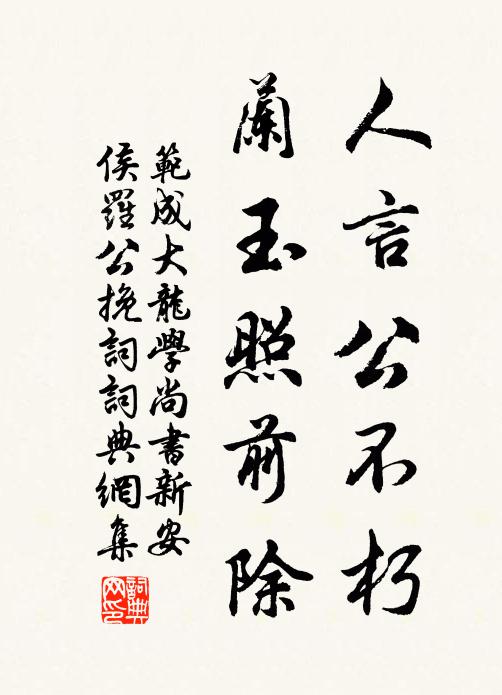 人言公不朽
蘭玉照前除
範成大龍學尚書新安
侯羅公挽詞詞典網集
詞典网印